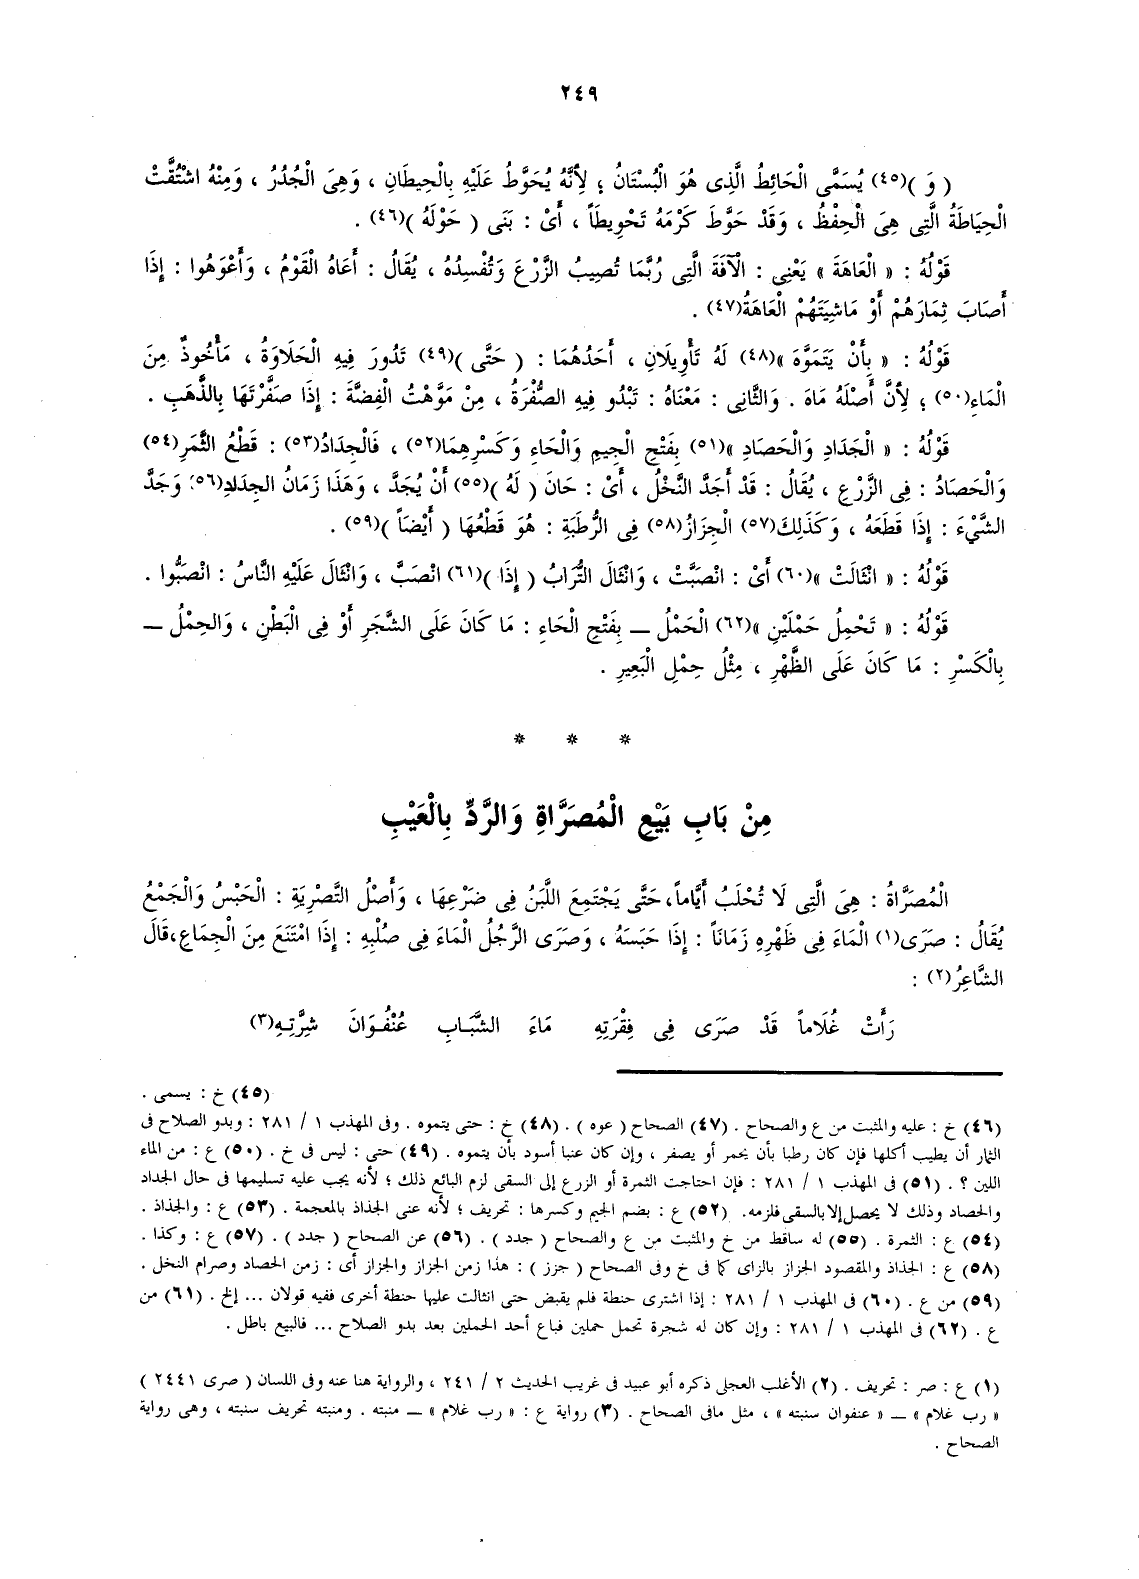 ٢٤٩
( وَ )(٤٥) يُسَمَّى الْحَائِطُ الَّذِى هُوَ الْبُسْتَانُ ؛ لِأَنَّهُ يُحَوَّطُ عَلَيْهِ بِالْحِيطَانِ ، وَهِىَ الْجُدُرُ ، وَمِنْهُ اشْتُقَّتْ
الْحِيَاطَةُ الَّتِى هِىَ الْحِفْظُ ، وَقَدْ حَوَّطَ كَرْمَهُ تَحْوِيطاً ، أَىْ : بَنَى ( حَوْلَهُ )(٤٦) .
قَوْلُهُ : « الْعَاهَةَ » يَعْنِى : الْآفَةَ الَّتِى رُبَّمَا تُصِيبُ الزَّرْعَ وَتُفْسِدُهُ ، يُقَالُ : أَعَاهُ الْقَوْمُ ، وَأَعْوَهُوا : إِذَا
أَصَابَ ثِمَارَهُمْ أَوْ مَاشِيَتَهُمْ الْعَاهَةُ(٤٧) .
قَوْلُهُ : « بِأَنْ يَتَمَوَّهَ »(٤٨) لَهُ تَأْوِيلَانِ ، أَحَدُهُمَا : ( حَتَّى )(٤٩) تَدُورَ فِيهِ الْحَلَاوَةُ ، مَأْخُوذٌ مِنَ
الْمَاءِ(٥٠) ؛ لِأَنَّ أَصْلَهُ مَاهَ . وَالثَّانِى : مَعْنَاهُ : تَبْدُو فِيهِ الصُّفْرَةُ ، مِنْ مَوَّهْتُ الْفِضَّةَ : إِذَا صَفَّرْتَهَا بِالذَّهَبِ .
قَوْلُهُ : « الْجَدَادِ وَالْحَصَادِ »(٥١) بِفَتْحِ الْجِيمِ وَالْحَاءِ وَكَسْرِهِمَا(٥٢) ، فَالْجِدَادُ(٥٣) : قَطْعُ الثَّمَرِ(٥٤)
وَالْحَصَادُ : فِى الزَّرْعِ ، يُقَالُ : قَدْ أَجَدَّ النَّخْلُ ، أَىْ : حَانَ ( لَهُ )(٥٥) أَنْ يُجَدَّ ، وَهَذَا زَمَانُ الْجِدَادِ(٥٦) وَجَدَّ
الشَّىْءَ : إِذَا قَطَعَهُ ، وَكَذَلِكَ(٥٧) الْجِزَازُ(٥٨) فِى الرُّطَبَةِ : هُوَ قَطْعُهَا ( أَيْضاً )(٥٩) .
قَوْلُهُ : « انْثَالَتْ »(٦٠) أَىْ : انْصَبَّتْ ، وَانْثَالَ التُّرَابُ ( إِذَا )(٦١) انْصَبَّ ، وَانْثَالَ عَلَيْهِ النَّاسُ : انْصَبُّوا .
قَوْلُهُ : « تَحْمِلُ حَمْلَيْنِ »(٦٢) الْحَمْلُ ــ بِفَتْحِ الْحَاءِ : مَا كَانَ عَلَى الشَّجَرِ أَوْ فِى الْبَطْنِ ، وَالْحِمْلُ ــ
بِالْكَسْرِ : مَا كَانَ عَلَى الظَّهْرِ ، مِثْلُ حِمْلِ الْبَعِيرِ .
* * *
مِنْ بَابِ بَيْعِ الْمُصَرَّاةِ وَالرَّدِّ بِالْعَيْبِ
الْمُصَرَّاةُ : هِىَ الَّتِى لَا تُحْلَبُ أَيَّاماً، حَتَّى يَجْتَمِعَ اللَّبَنُ فِى ضَرْعِهَا ، وَأَصْلُ التَّصْرِيَةِ : الْحَبْسُ وَالْجَمْعُ
يُقَالُ : صَرَى(١) الْمَاءَ فِى ظَهْرِهِ زَمَاناً : إِذَا حَبَسَهُ ، وَصَرَى الرَّجُلُ الْمَاءَ فِى صُلْبِهِ : إِذَا امْتَنَعَ مِنَ الْجِمَاعِ،قَالَ
الشَّاعِرُ(٢) :
رَأَتْ غُلَاماً قَدْ صَرَى فِى فِقْرَتِهِ مَاءَ الشَّبَابِ عُنْفُوَانَ شِرَّتِهِ(٣)
(٤٥) خ : يسمى .
(٤٦) خ : عليه والمثبت من ع والصحاح . (٤٧) الصحاح ( عوه ) . (٤٨) خ : حتى يتموه . وفى المهذب ١ / ٢٨١ : وبدو الصلاح فى
الثمار أن يطيب أكلها فإن كان رطبا بأن يحمر أو يصفر ، وإن كان عنبا أسود بأن يتموه . (٤٩) حتى : ليس فى خ . (٥٠) ع : من الماء
اللين ؟ . (٥١) فى المهذب ١ / ٢٨١ : فإن احتاجت الثمرة أو الزرع إلى السقى لزم البائع ذلك ؛ لأنه يجب عليه تسليمها فى حال الجداد
والحصاد وذلك لا يحصل إلا بالسقى فلزمه. (٥٢) ع : بضم الجيم وكسرها : تحريف ؛ لأنه عنى الجذاذ بالمعجمة . (٥٣) ع : والجذاذ .
(٥٤) ع : الثمرة . (٥٥) له ساقط من خ والمثبت من ع والصحاح ( جدد ) . (٥٦) عن الصحاح ( جدد ) . (٥٧) ع : وكذا .
(٥٨) ع : الجذاذ والمقصود الجزاز بالزاى كما فى خ وفى الصحاح ( جزز ) : هذا زمن الجزاز والجزاز أى : زمن الحصاد وصرام النخل .
(٥٩) من ع . (٦٠) فى المهذب ١ / ٢٨١ : إذا اشترى حنطة فلم يقبض حتى انثالت عليها حنطة أخرى ففيه قولان ... إلخ . (٦١) من
ع . (٦٢) فى المهذب ١ / ٢٨١ : وإن كان له شجرة تحمل حملين فباع أحد الحملين بعد بدو الصلاح ... فالبيع باطل .
(١) ع : صر : تحريف . (٢) الأغلب العجلى ذكره أبو عبيد فى غريب الحديث ٢ / ٢٤١ ، والرواية هنا عنه وفى اللسان ( صرى ٢٤٤١ )
« رب غلام » ــ « عنفوان سنبته » ، مثل مافى الصحاح . (٣) رواية ع : « رب غلام » ــ منبته . ومنبته تحريف سنبته ، وهى رواية
الصحاح .